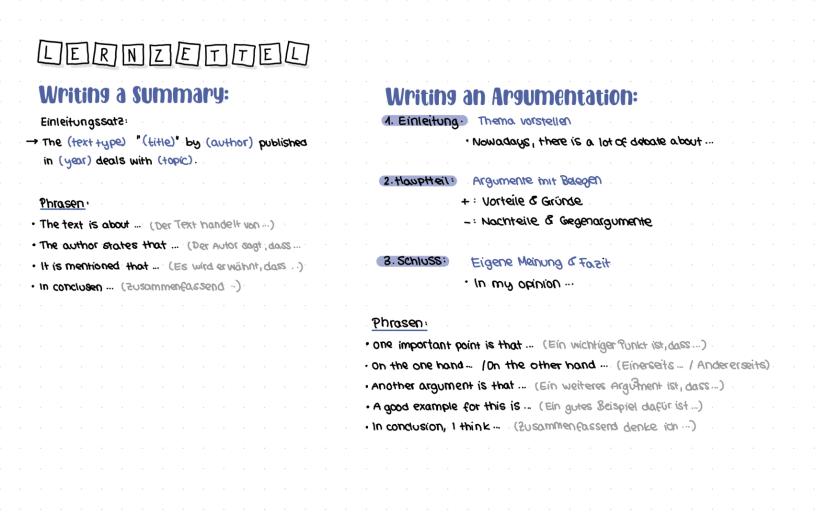 LERNZETTEL
Writing a Summary:
Einleitungssatz:
→ The (text type) "(title)" by (author) published
in (year) deals with (topic).
Phrasen:
• The text is about ... (Der Text handelt von ...)
• The author states that ... (Der Autor sagt, dass ...
• It is mentioned that ... (Es wird erwähnt, dass ..)
• In conclusen ... (Zusammenfassend ..)
Writing an Argumentation:
1. Einleitung: Thema vorstellen
• Nowadays, there is a lot of debate about ...
2. Hauptteil: Argumente mit Belegen
+ : Vorteile & Gründe
- : Nachteile & Gegenargumente
3. Schluss: Eigene Meinung & Fazit
• In my opinion ...
Phrasen:
• One important point is that ... (Ein wichtiger Punkt ist, dass ...)
• On the one hand ... / On the other hand ... (Einerseits ... / Andererseits)
• Another argument is that ... (Ein weiteres Argument ist, dass ...)
• A good example for this is ... (Ein gutes Beispiel dafür ist ...)
• In conclusion, I think ... (Zusammenfassend denke ich ...)